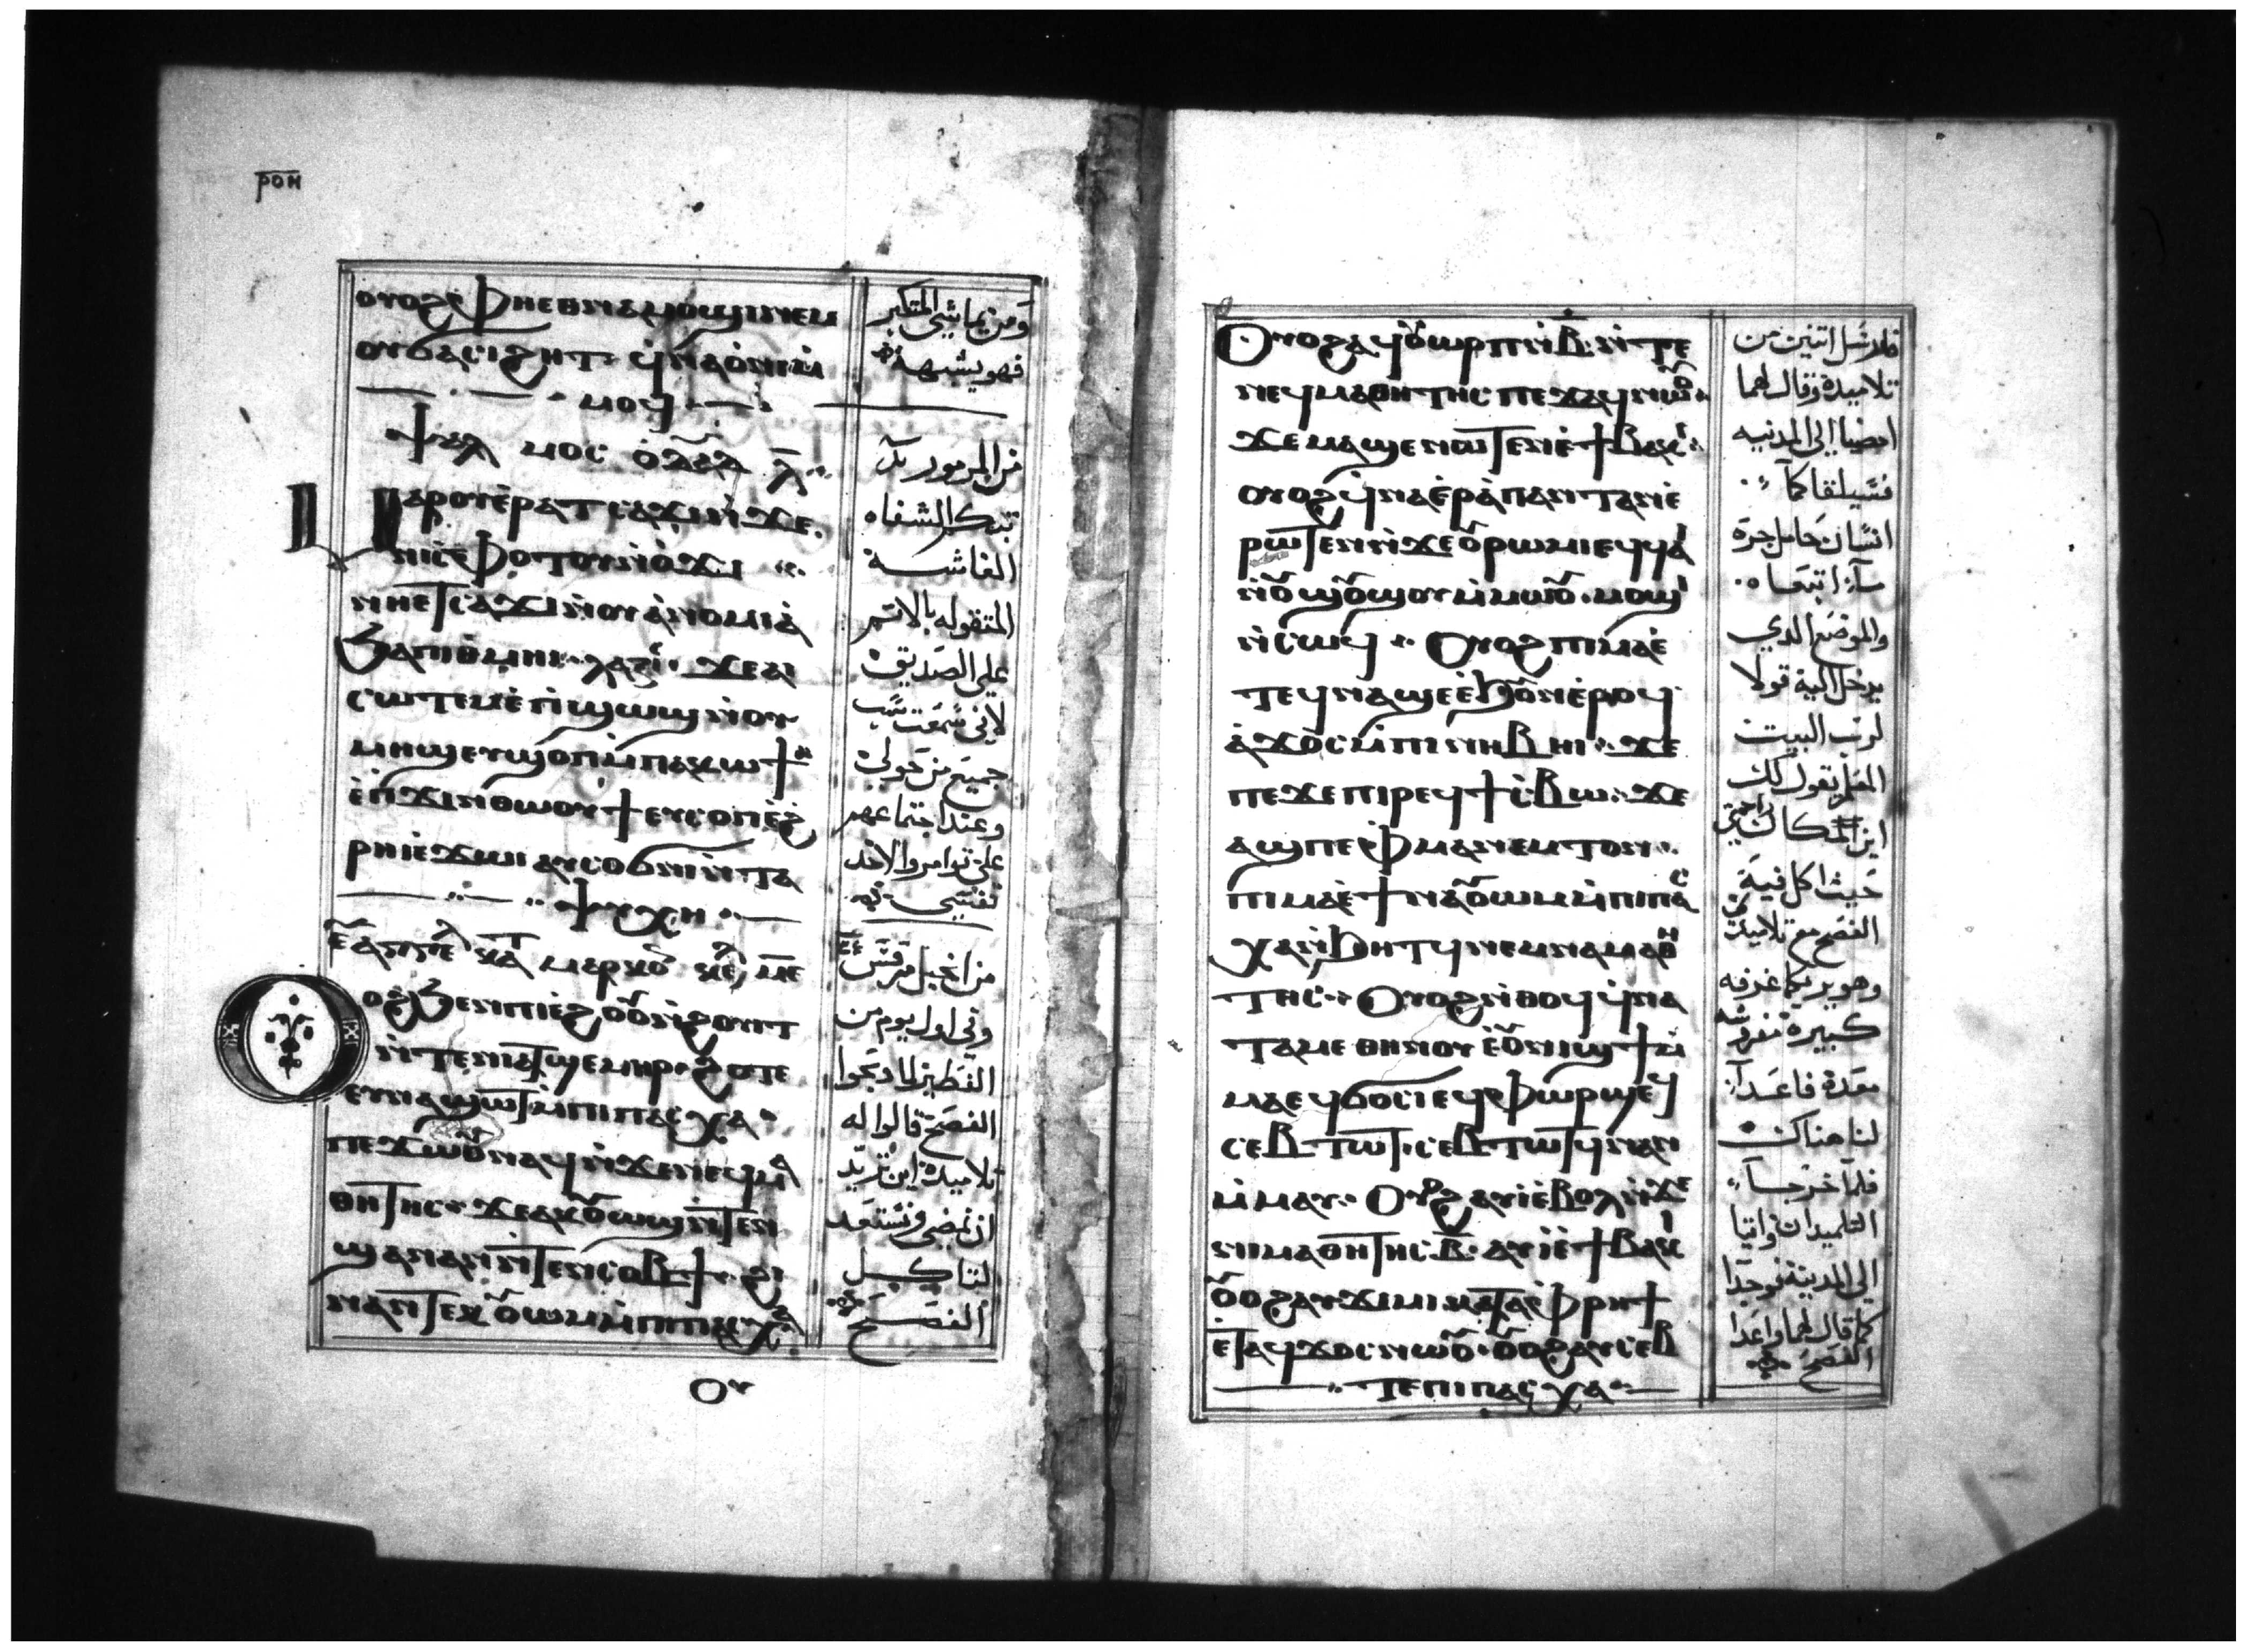 ⲣⲟⲏ
ⲟⲩⲟϩ ⲫⲏⲉⲑⲛⲁⲙⲟϣⲓ ⲛⲉⲙ
ⲟⲩϭⲁⲥⲓϩⲏⲧ ϥⲛⲁⲟⲛⲓ ⲙ̀
ⲙⲟϥ
ⲯⲁⲗ ⲙⲟⲥ ⲗ̅
ⲙⲁⲣⲟⲩⲉⲣⲁⲧⲥⲁϫⲓ ⲛϫⲉ
ⲛⲓⲥⲫⲟⲧⲟⲩ ⲛⲟϫⲓ
ⲛⲏⲉⲧⲥⲁϫⲓ ⲛⲟⲩⲁⲛⲟⲙⲓⲁ
ϧⲁ ⲡⲓⲑⲙⲏⲓ ϫⲉ ⲁⲓ
ⲥⲱⲧⲉⲙ ⲉⲡϣⲱϣ ⲛⲟⲩ
ⲙⲏϣ ⲉⲩϣⲟⲡ ⲙⲡⲁⲕⲱϯ
ⲉⲡϫⲓⲛⲑⲱⲟⲩϯ ⲉⲩⲥⲟⲡ ⲉϩ
ⲣⲏⲓ ⲉϫⲱⲓ ⲁⲩⲥⲟϭⲛⲓ ⲛⲧⲁ
ⲯⲩⲭⲏ
ⲕⲁⲧⲁ ⲙⲁⲣⲕⲟ
ⲟϩ ϧⲉⲛ ⲡⲓⲉϩⲟⲟⲩ ⲛϩⲟⲩⲓⲧ
ⲛⲧⲉ ⲛⲓⲁⲧϣⲉⲙⲏⲣ ϩⲟⲧⲉ
ⲉⲩⲛⲁϣⲱⲧ ⲙⲡⲓⲡⲁⲥⲭⲁ
ⲡⲉϫⲱⲟⲩ ⲛⲁϥ ⲛϫⲉ ⲛⲉϥⲙⲁ
ⲑⲏⲧⲏⲥ ϫⲉ ⲁⲕⲟⲩⲱϣ ⲛⲧⲉⲛ
ϣⲉⲛⲁⲛ ⲛⲧⲉⲛⲥⲟⲃϯ ϩⲓ
ⲛⲁ ⲛⲧⲉⲕⲟⲩⲱⲙ ⲙⲡⲓⲡⲁⲥⲭⲁ
ⲟⲩ
ومن يماشي المتكبر
فهو يشبهه
من المزمور
تبكم الشفاه
الغاشة
المتقوله بالاثم
على الصديق
لاني سمعت سب
جميع من حولي
وعند اجتماعهم
علي توامروا لاخد
نفسي
من انجيل مرقس
وفي اول يوم من
الفطير لما دبحوا
الفصح قالوا له
تلاميده اين تريد
ان نمضي ونستعد
لتاكل
الفصح
ⲟⲩⲟϩ ⲁϥⲟⲩⲱⲣⲡ ⲛⲃ̅ ⲛⲧⲉ
ⲛⲉϥⲙⲁⲑⲏⲧⲏⲥ ⲡⲉϫⲁϥ ⲛⲱⲟⲩ
ϫⲉ ⲙⲁϣⲉⲛⲱⲧⲉⲛ ⲉϯⲃⲁⲕⲓ
ⲟⲩⲟϩ ϥⲛⲁⲉⲣⲁⲡⲁⲛⲧⲁⲛ ⲉ
ⲣⲱⲧⲉⲛ ⲛϫⲉ ⲟⲩⲣⲱⲙⲓ ⲉϥϥⲁⲓ
ⲛⲟⲩϣⲟϣⲟⲩ ⲙⲙⲱⲟⲩ ⲙⲟϣⲓ
ⲛⲥⲱϥ ⲟⲩⲟϩ ⲡⲓⲙⲁ ⲉ
ⲧⲉϥⲛⲁϣⲉ ⲉϧⲟⲩⲛ ⲉⲣⲟϥ
ⲁϫⲟⲥ ⲙⲡⲓⲛⲏⲃ ⲏⲓ ϫⲉ
ⲡⲉϫⲉ ⲡⲓⲣⲉϥϯⲥⲃⲱ ϫⲉ
ⲁϣ ⲡⲉ ⲫⲙⲁⲛⲉⲙⲧⲟⲛ
ⲡⲓⲙⲁ ⲉϯⲛⲁⲟⲩⲱⲙ ⲙⲡⲓⲡⲁⲥ
ⲭⲁ ⲛϧⲏⲧϥ ⲛⲉⲙ ⲛⲁⲙⲁⲑⲏ
ⲧⲏⲥ ⲟⲩⲟϩ ⲛⲑⲟϥ ϥⲛⲁ
ⲧⲁⲙⲉ ⲑⲏⲛⲟⲩ ⲉⲟⲩⲛⲓϣϯ ⲙ
ⲙⲁ ⲉϥϭⲟⲥⲓ ⲉϥⲫⲱⲣϣ ⲉϥ
ⲥⲉⲃⲧⲱⲧ ⲥⲉⲃⲧⲱⲧϥ ⲛⲁⲛ
ⲙⲙⲁⲩ ⲟⲩⲟϩ ⲁⲩⲓ ⲉⲃⲟⲗ ⲛϫⲉ
ⲛⲓⲙⲁⲑⲏⲧⲏⲥ ⲃ̅ ⲁⲩⲓ ⲉϯⲃⲁⲕⲓ
ⲟⲩⲟϩ ⲁⲩϫⲓⲙⲓ ⲕⲁⲧⲁ ⲫⲣⲏϯ
ⲉⲧⲁϥϫⲟⲥ ⲛⲱⲟⲩ ⲟⲩⲟϩ ⲁⲩⲥⲉⲃ
ⲧⲉ ⲡⲓⲡⲁⲥⲭⲁ
فارسل اتنين من
تلاميده وقال لهما
امضيا الى المدينه
فسيلقاكما
انسان حامل جرة
ماء اتبعاه
والموضع الدي
يدخل اليه قولا
لرب البيت
المعلم يقول لك
اين المكان راحتي
حيث اكل فيه
الفصح مع تلاميدي
وهو يريكما غرفه
كبيرة مفروشه
معدة فاعدا
لنا هناك
فلما خرجا
التلميدان واتيا
الى المدينة فوجدا
كما قال لهما واعدا
الفصح